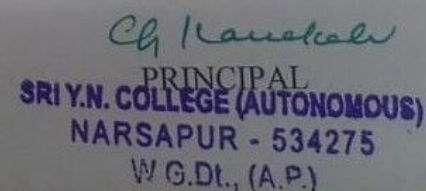 PRINCIPAL
SRI Y.N. COLLEGE (AUTONOMOUS)
NARSAPUR - 534275
W G.Dt., (A.P.)